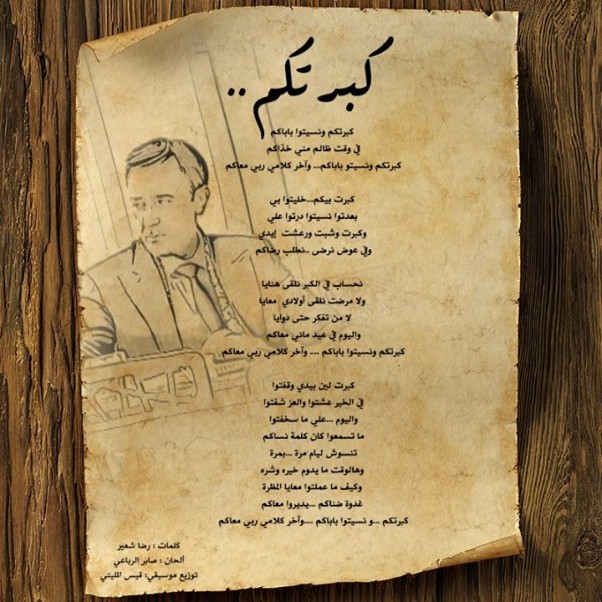 كبرتكم ..
كبرتكم ونسيتوا باباكم
في وقت ظالم مني خذاكم
كبرتكم ونسيتو باباكم... وآخر كلامي ربي معاكم
كبرت بيكم...خليتوا بي
بعدتوا نسيتوا درتوا علي
وكبرت وشبت ورعشت إيدي
وفي عوض نرضى ..نطلب رضاكم
نحساب في الكبر نلقى هنايا
ولا مرضت نلقى أولادي معايا
لا من تفكر حتى دوايا
واليوم في عيد ماني معاكم
كبرتكم ونسيتوا باباكم .... وآخر كلامي ربي معاكم
كبرت لين بيدي وقفتوا
في الخير عشتوا والعز شفتوا
واليوم ...علي ما سخفتوا
ما تسمعوا كان كلمة نساكم
تنسوش ليام مرة ...بمرة
وهالوقت ما يدوم خيره وشره
وكيف ما عملتوا معايا المظرة
غدوة ضناكم ...يديروا معاكم
كبرتكم ...و نسيتوا باباكم ....وآخر كلامي ربي معاكم
كلمات : رضا شعير
ألحان : صابر الرباعي
توزيع موسيقي: قيس المليتي